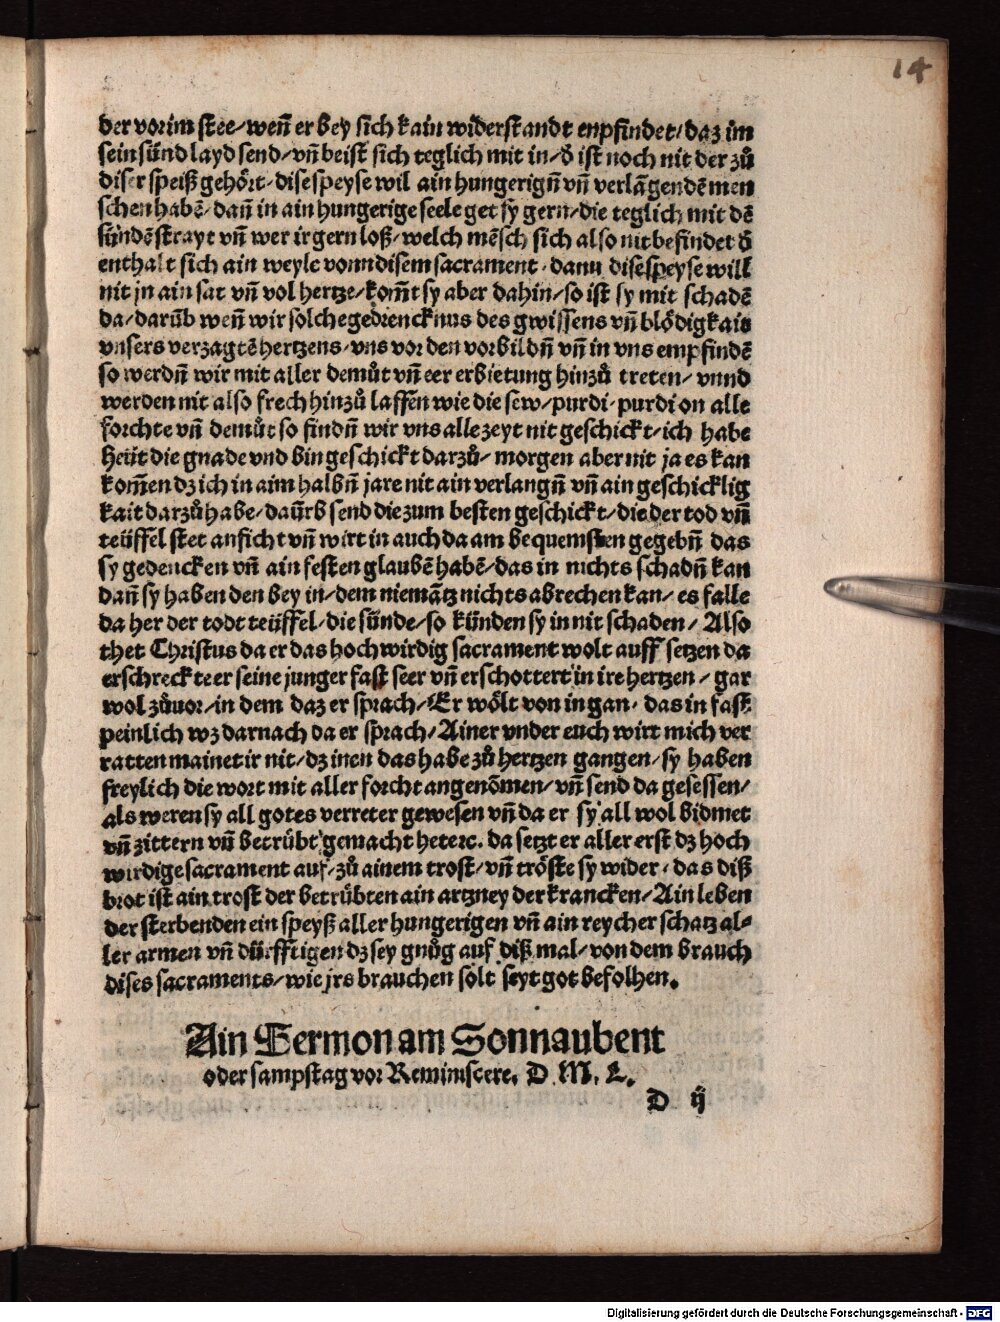 14
der vor im stee/ weñ er bey sich kain widerstandt enpfindet/ daz im
sein sünd layd send/ vñ beist sich teglich mit in/ ð ist noch nit der zů
diser speiß gehört/ dise speyse wil ain hungerigñ vñ verlãgendẽ men
schen habẽ/ dañ in ain hungerige seele get sy gern/ die teglich mit dẽ
sündẽ strayt vñ wer ir gern loß/ welch mẽsch sich also nit befindet ð
enthalt sich ain weyle vonn disem sacrament/ dann dise speyse will
nit jn ain sat vñ vol hertze/ kom̃t sy aber dahin/ so ist sy mit schadẽ
da/ darũb weñ wir solche gedrencknus des gwissens vñ blödigkait
vnsers verzagtẽ hertzens/ vns vor den vorbildñ vñ in vns empfindẽ
so werdñ wir mit aller demůt vñ eer erbietung hinzů treten/ vnnd
werden nit also frech hinzů lassen wie die sew/ purdi purdi on alle
forchte vñ demůt so findñ wir vns alle zeyt nit geschickt/ ich habe
heüt die gnade vnd bin geschickt darzů/ morgen aber nit ja es kan
kom̃en dz ich in aim halbñ jare nit ain verlangñ vñ ain geschicklig
kait darzů habe/ daũrb send die zum besten geschickt/ die der tod vñ
teüffel stet anficht vñ wirt in auch da am bequemsten gegebñ das
sy gedencken vñ ain festen glaubẽ habẽ/ das in nichts schadñ kan
dañ sy haben den bey in/ dem niemãtz nichts abrechen kan/ es falle
da her der todt teüffel/ die sünde/ so künden sy in nit schaden/ Also
thet Christus da er das hochwirdig sacrament wolt auff setzen da
erschreckte er seine junger fast seer vñ erschottert in ire hertzen/ gar
wol zůuor/ in dem daz er sprach/ Er wölt von in gan/ das in fast
peinlich wz darnach da er sprach/ Ainer vnder euch wirt mich ver
ratten mainet ir nit/ dz inen das habe zů hertzen gangen/ sy haben
freylich die wort mit aller forcht angenõmen/ vñ send da gesessen/
als weren sy all gotes verreter gewesen vñ da er sy all wol bidmet
vñ zittern vñ betrübt gemacht hete rc. da setzt er aller erst dz hoch
wirdige sacrament auf/ zů ainem trost/ vñ tröste sy wider/ das diß
brot ist ain trost der betrübten ain artzney der krancken/ Ain leben
der sterbenden ein speyß aller hungerigen vñ ain reycher schatz al⸗
ler armen vñ dürfftigen dz sey gnůg auf diß mal/ von dem brauch
dises sacraments/ wie jrs brauchen solt seyt got befolhen.
Ain Sermon am Sonnaubent
oder sampstag vor Reminiscere. D. M. L.
D ij
Digitalisierung gefördert durch die Deutsche Forschungsgemeinschaft - DFG